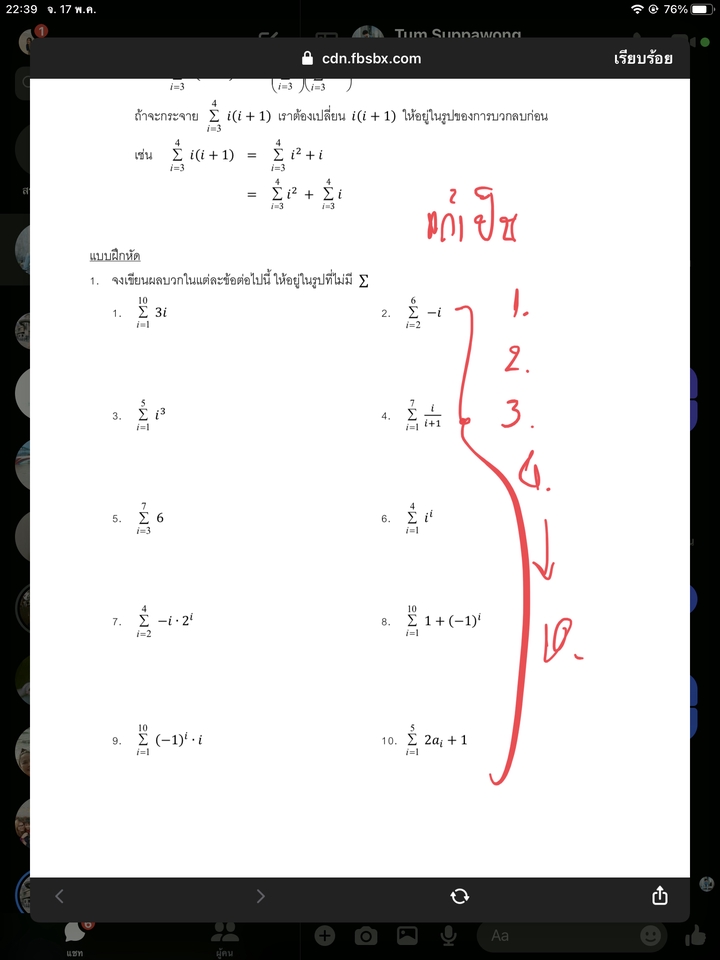 22:39 จ. 17 พ.ค. 76%
1 Tum Suppawong
cdn.fbsbx.com เรียบร้อย
i=3 (i=3)(i=3)
ถ้าจะกระจาย 4 Σ i=3 i(i + 1) เราต้องเปลี่ยน i(i + 1) ให้อยู่ในรูปของการบวกลบก่อน
เช่น 4 Σ i=3 i(i + 1) = 4 Σ i=3 i² + i
= 4 Σ i=3 i² + 4 Σ i=3 i
แบบฝึกหัด
1. จงเขียนผลบวกในแต่ละข้อต่อไปนี้ ให้อยู่ในรูปที่ไม่มี Σ
1. 10 Σ i=1 3i 2. 6 Σ i=2 −i 1.
2.
3. 5 Σ i=1 i³ 4. 7 Σ i=1 i/(i+1) 3.
5. 7 Σ i=3 6 6. 4 Σ i=1 iⁱ
7. 4 Σ i=2 −i · 2ⁱ 8. 10 Σ i=1 1 + (−1)ⁱ
9. 10 Σ i=1 (−1)ⁱ · i 10. 5 Σ i=1 2aᵢ + 1
Aa
แชท ผู้คน